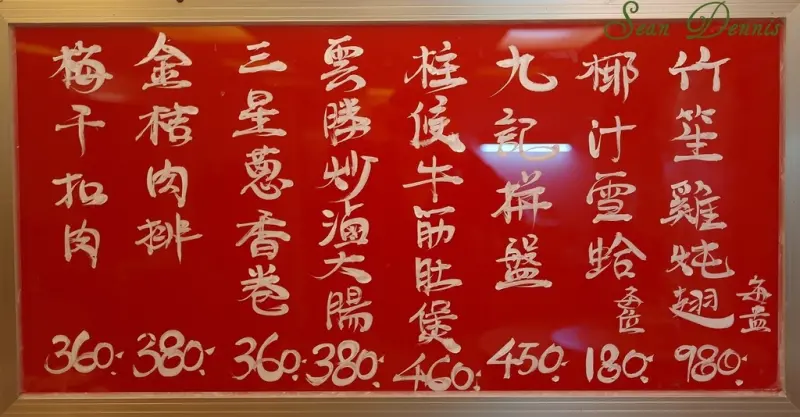 Sean Dennis
竹笙雞炖翅
每盅
980.-
椰汁雪蛤
每位
180.-
九記拼盤
450.-
柱侯牛筋肚煲
460.-
雲勝炒滷大腸
380.-
三星蔥香卷
360.-
金桔肉排
380.-
梅干扣肉
360.-